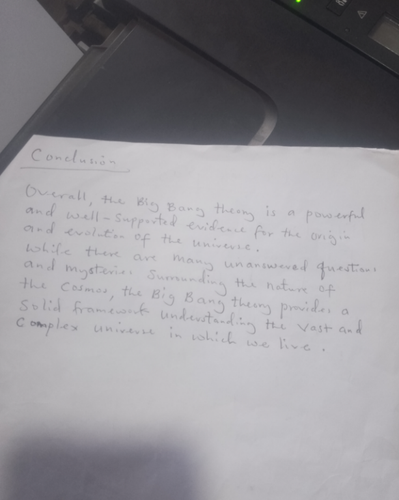 Conclusion
Overall, the Big Bang theory is a powerful
and well-supported evidence for the origin
and evolution of the universe.
While there are many unanswered questions
and mysteries surrounding the nature of
the Cosmos, the Big Bang theory provides a
Solid framework understanding the vast and
Complex universe in which we live.